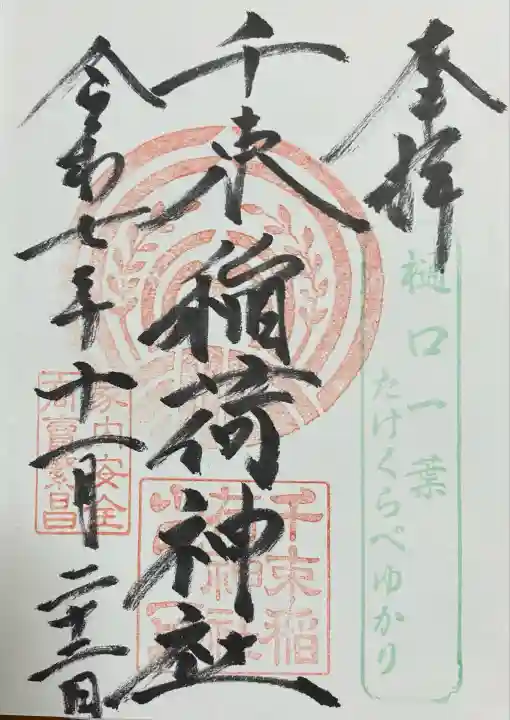 奉拝
樋口一葉
たけくらべゆかり
千束稲荷神社
千束稲
荷神社
令和七年十一月二十三日
家内安全
商売繁昌